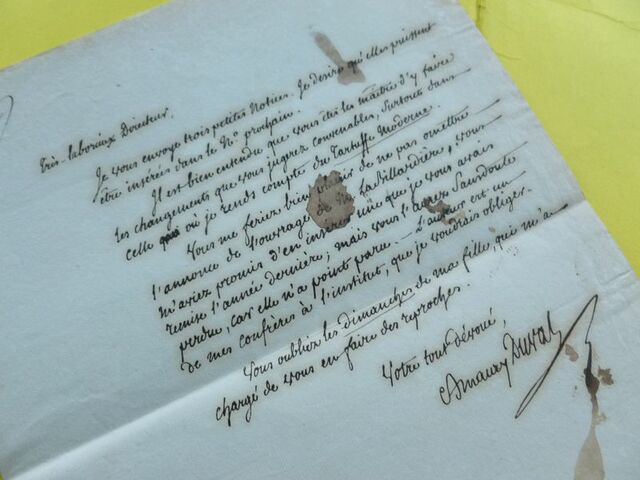 Très-laborieux Directeur.
Je vous envoye trois petites Notices. Je desire qu'elles puissent
être inserées dans le N° prochain.
Il est bien entendu que vous êtes les maître d'y faire
les changements que vous jugerez convenables, Surtout dans
celle où je rends compte du Tartuffe Moderne.
Vous me feriez bien de ne pas omettre
l'annonce de l'ouvrage de M. Labillardière; vous
m'aviez promis d'en une que je vous avais
remise l'année dernière; mais vous l'aurez Sansdoute
perdue, car elle n'a point paru. L'auteur est un
de mes confrères à l'institut, que je voudrais obliger.
Vous oubliez les dimanches de ma fille, qui m'a
chargé de vous en faire des reproches.
Votre tout dévoué,
Amaury Duval